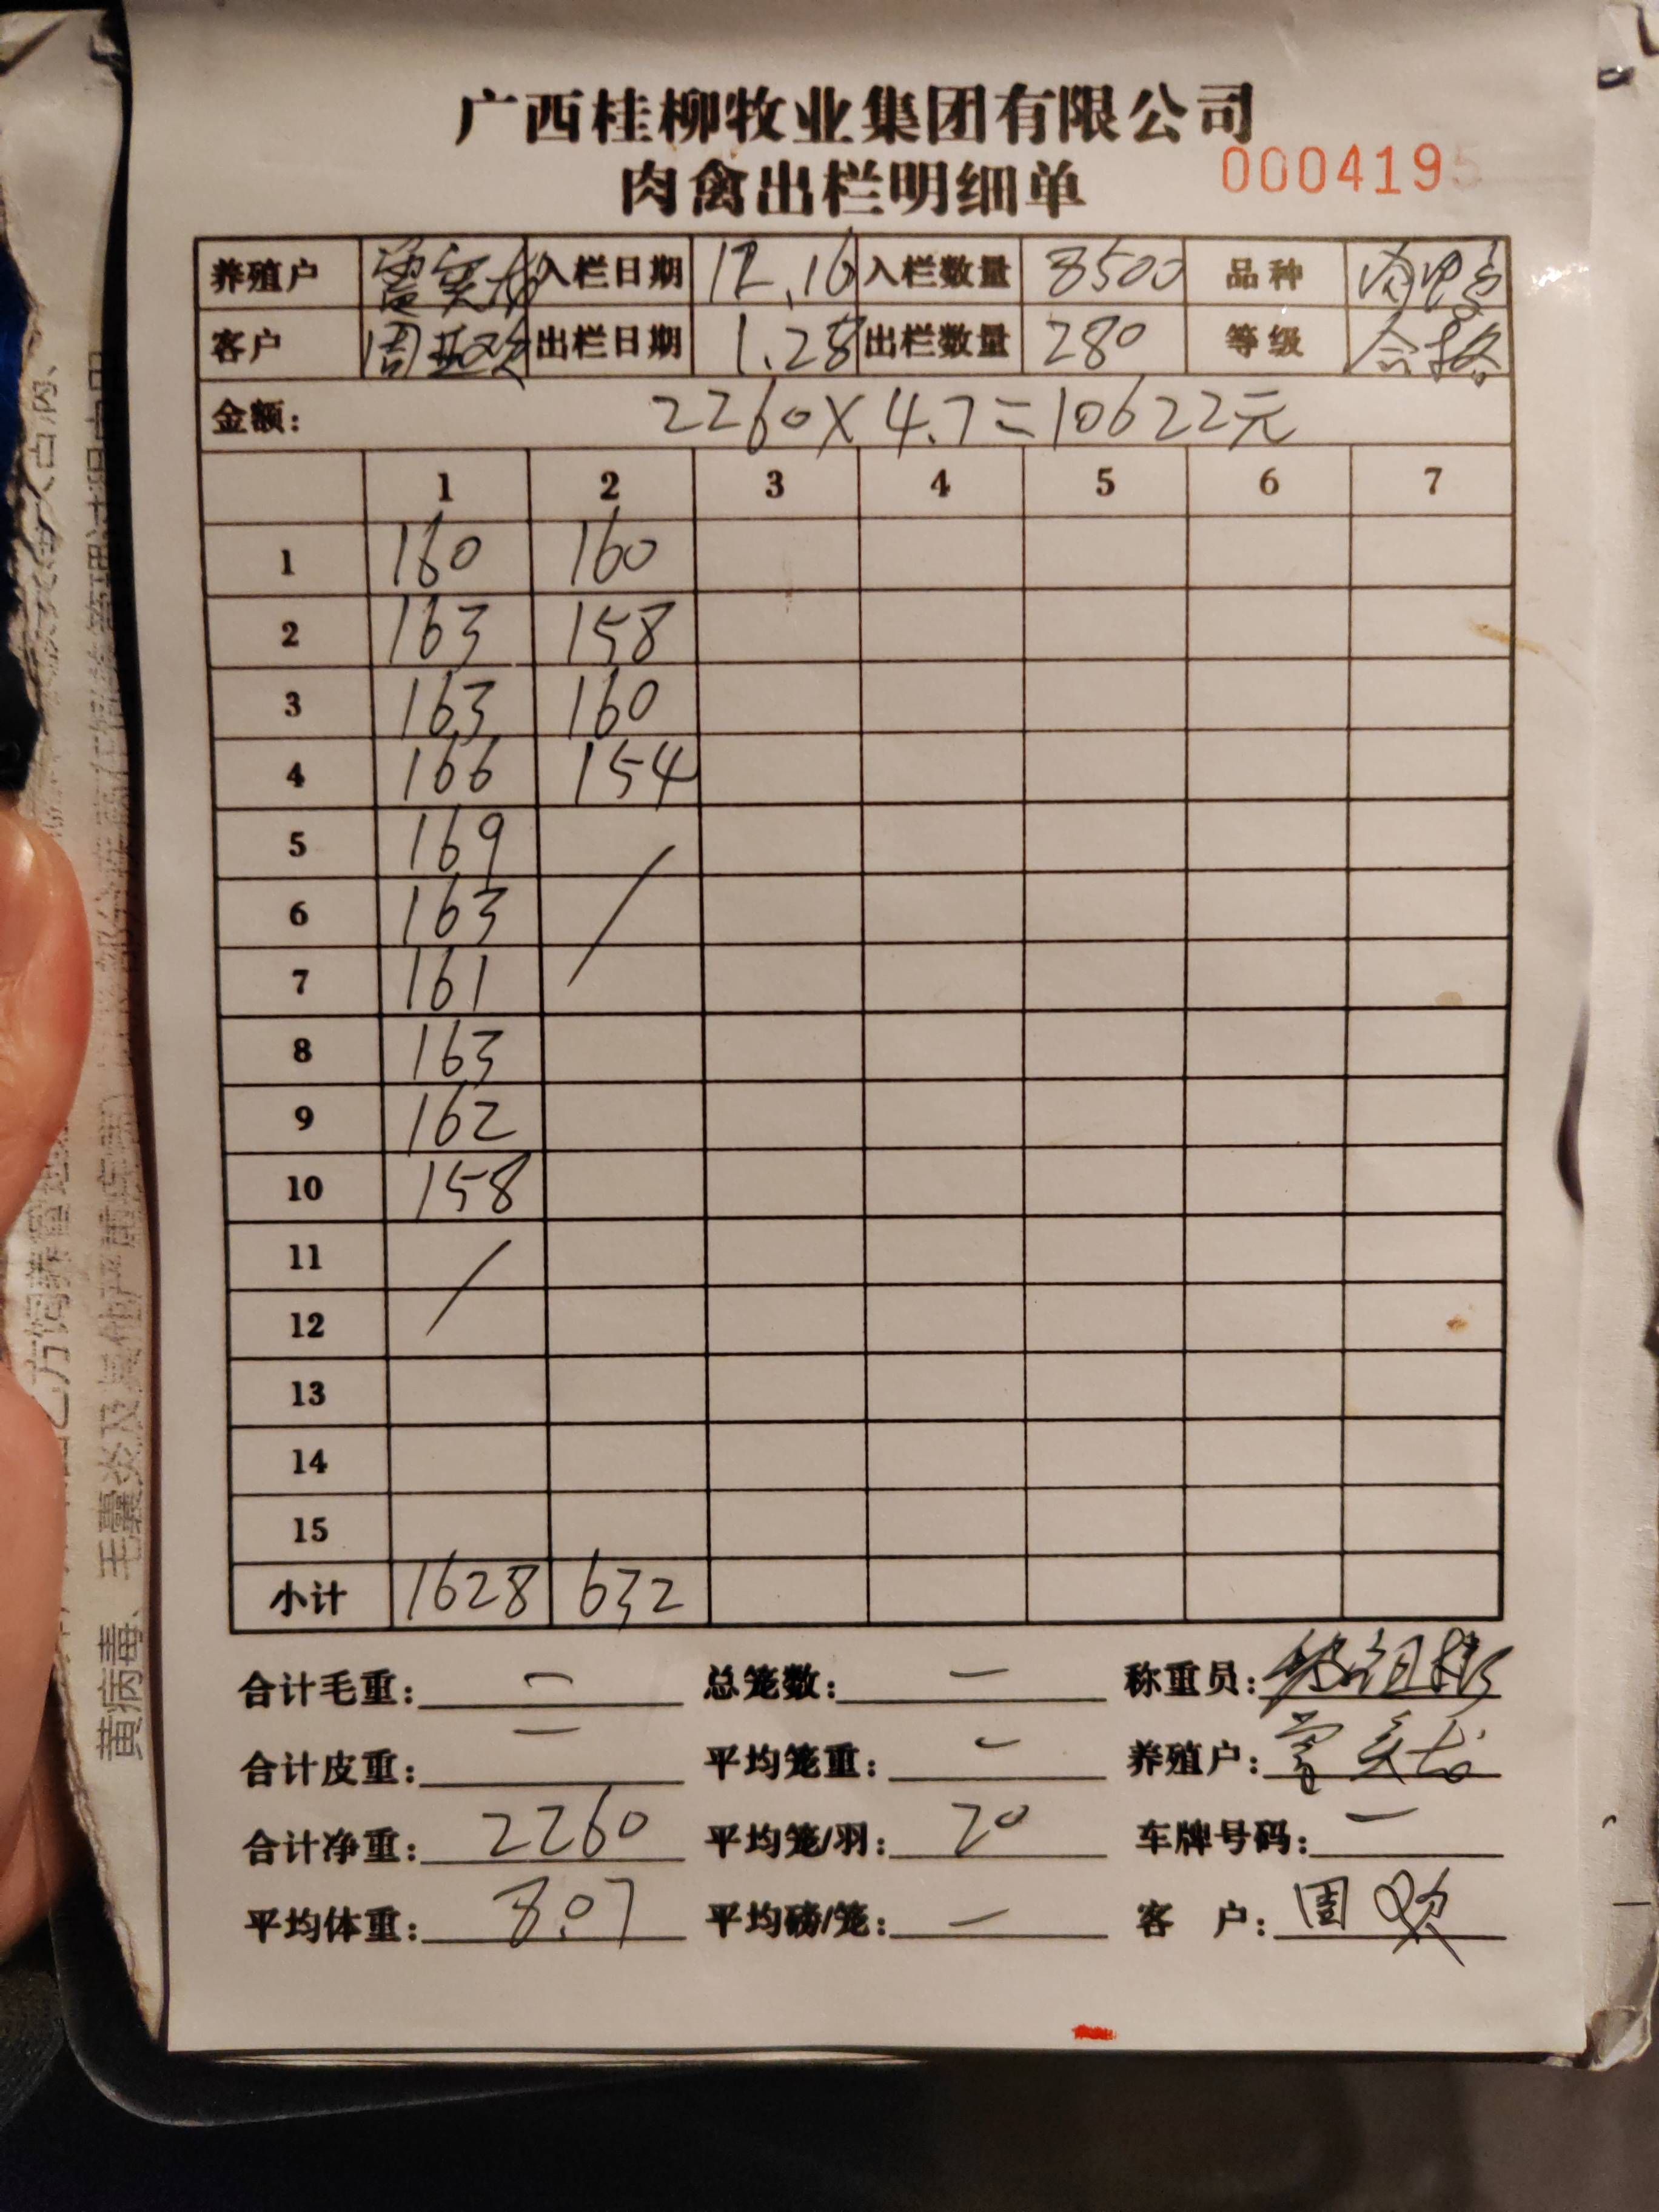 广西桂柳牧业集团有限公司
肉禽出栏明细单 000419
养殖户 入栏日期 12.16 入栏数量 8500 品种 肉鸭
客户 周 出栏日期 1.28 出栏数量 280 等级 合格
金额: 2260×4.7=10622元
1 2 3 4 5 6 7
1 160 160
2 163 158
3 163 160
4 166 154
5 169
6 163
7 161
8 163
9 162
10 158
11
12
13
14
15
小计 1628 632
合计毛重: — 总笼数: — 称重员:
合计皮重: — 平均笼重: — 养殖户:
合计净重: 2260 平均笼/羽: 20 车牌号码: —
平均体重: 8.07 平均磅/笼: — 客 户: 周
黄病毒、毛囊炎及其他严重